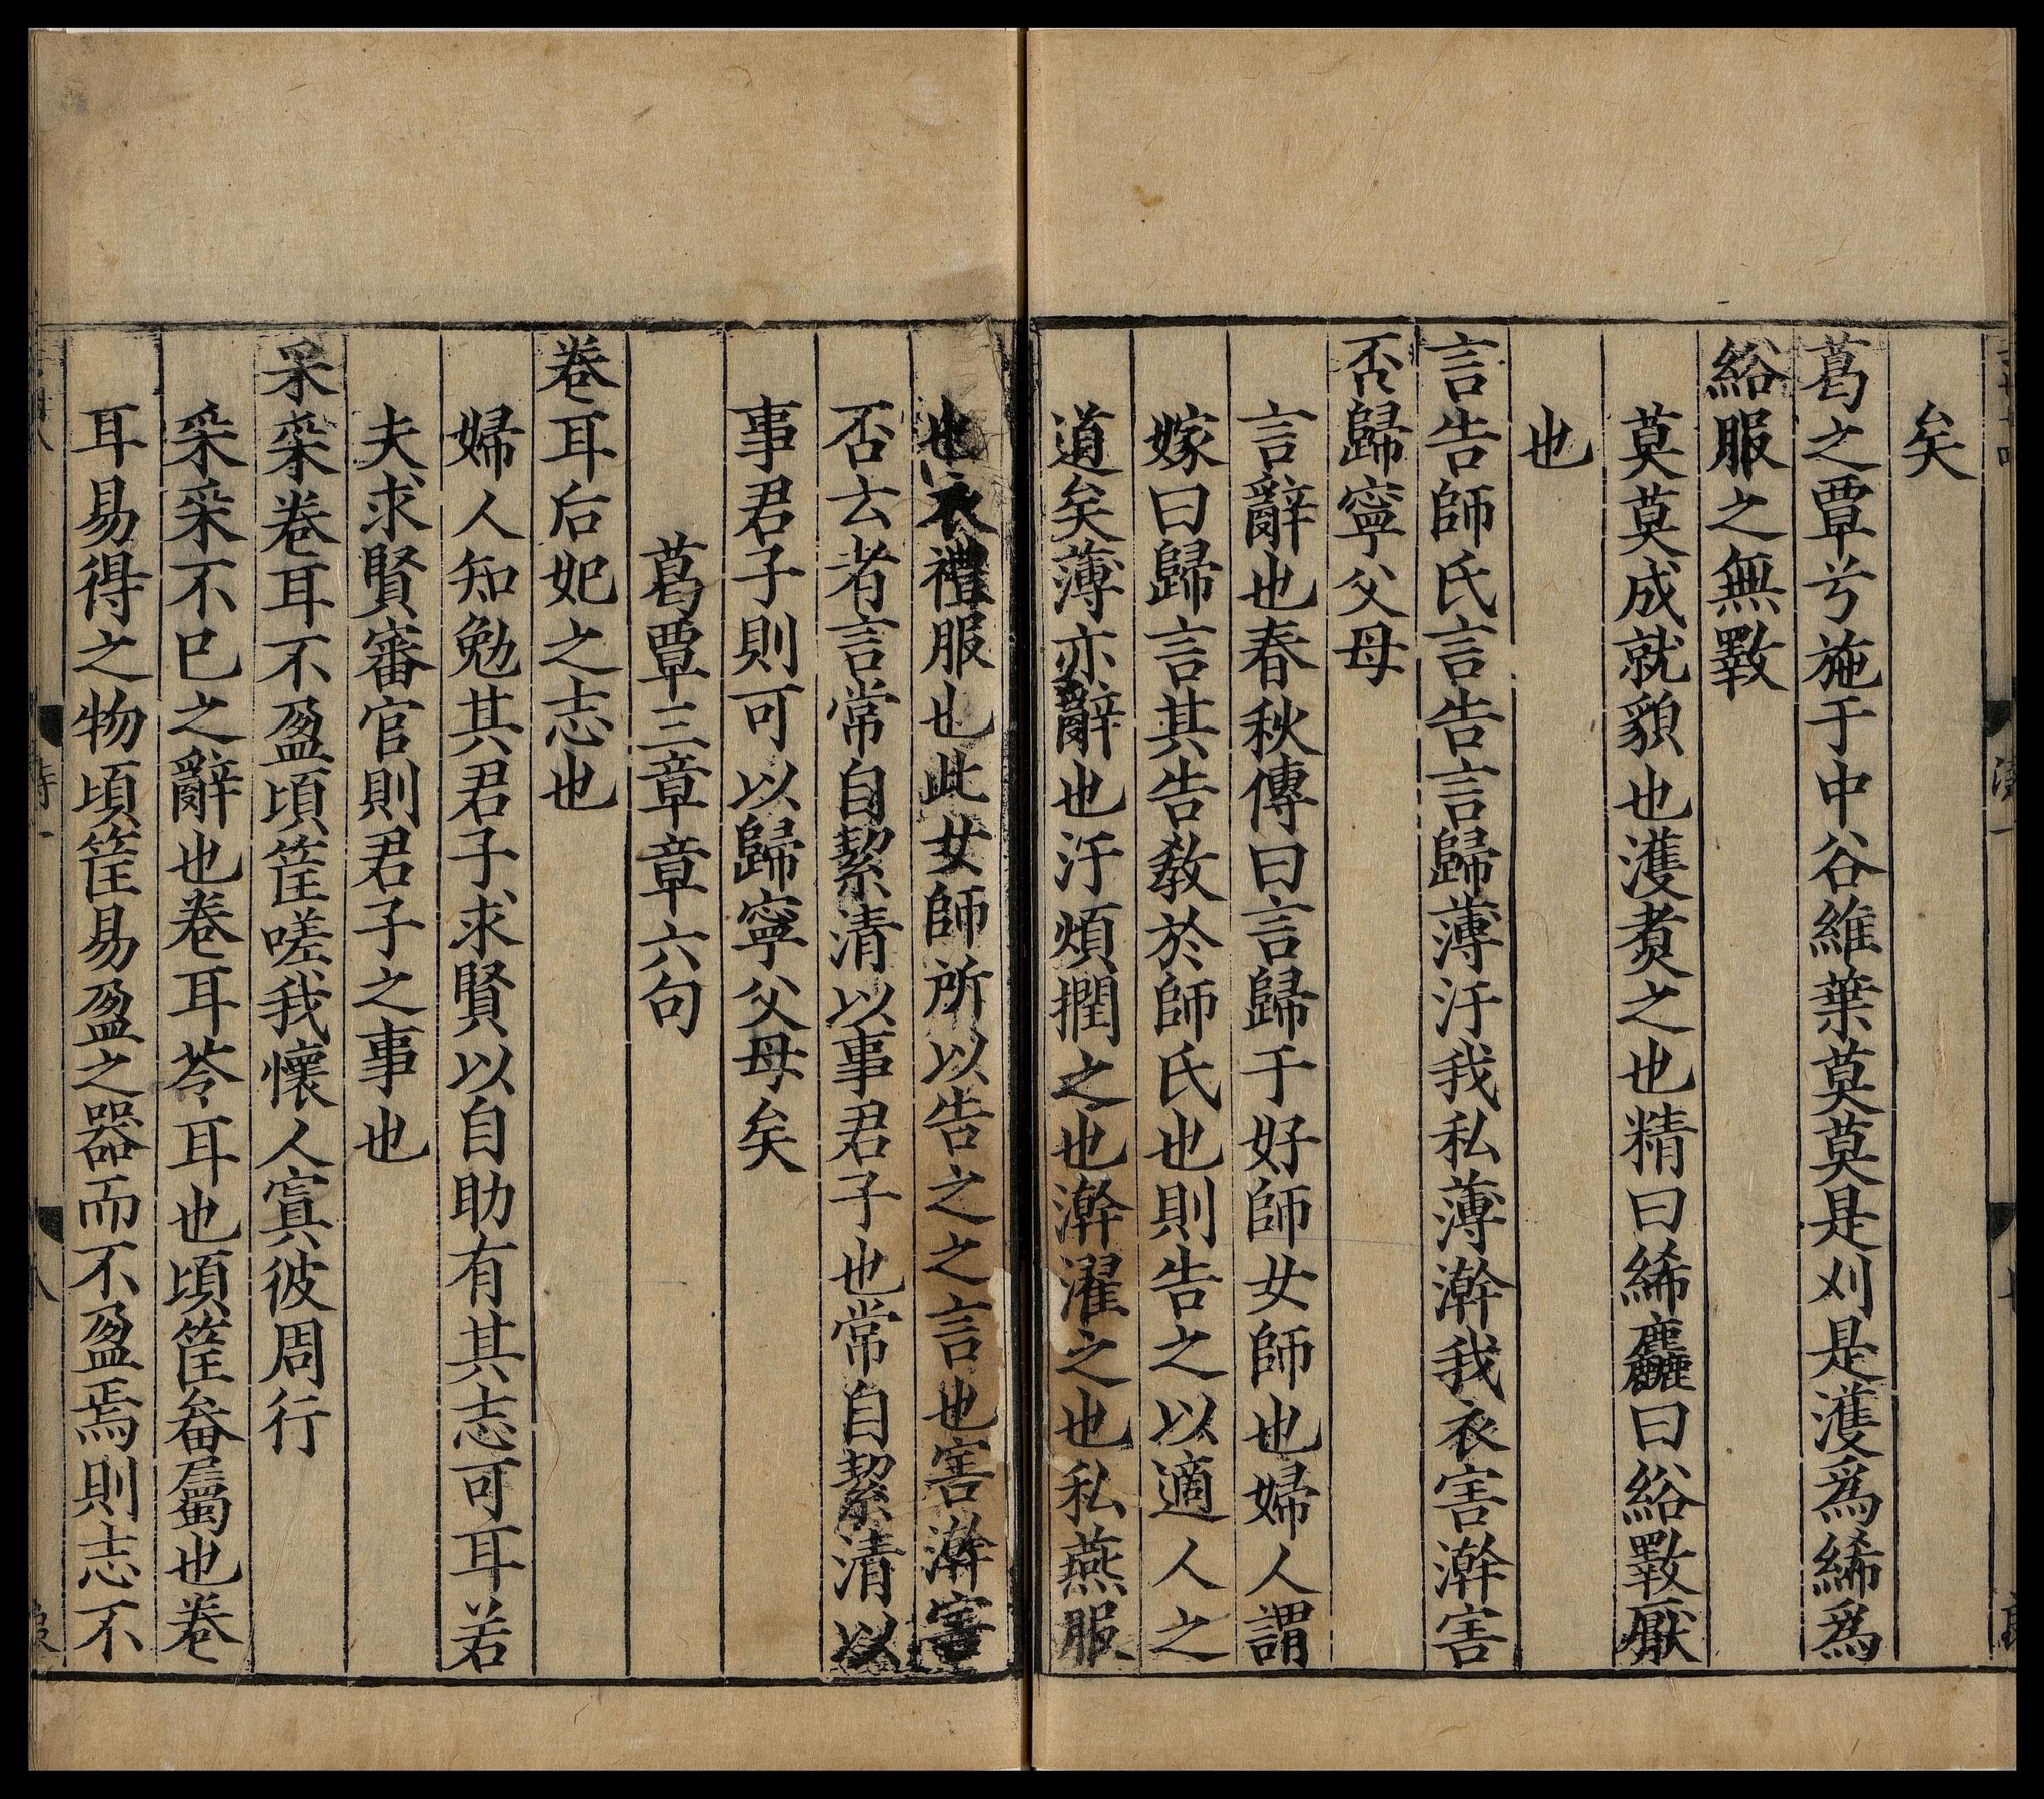 矣
葛之覃兮施于中谷維葉莫莫是刈是濩爲絺爲
綌服之無斁
莫莫成就貌也濩煑之也精曰絺麤曰綌斁厭
也
言告師氏言告言歸薄汙我私薄澣我衣害澣害
否歸寧父母
言辭也春秋傳曰言歸于好師女師也婦人謂
嫁曰歸言其告教於師氏也則告之以適人之
道矣薄亦辭也汙煩撋之也澣濯之也私燕服
也衣禮服也此女師所以告之之言也害澣害
否云者言常自絜清以事君子也常自絜清以
事君子則可以歸寧父母矣
葛覃三章章六句
卷耳后妃之志也
婦人知勉其君子求賢以自助有其志可耳若
夫求賢審官則君子之事也
采采卷耳不盈頃筐嗟我懷人寘彼周行
采采不已之辭也卷耳苓耳也頃筐畚屬也卷
耳易得之物頃筐易盈之器而不盈焉則志不